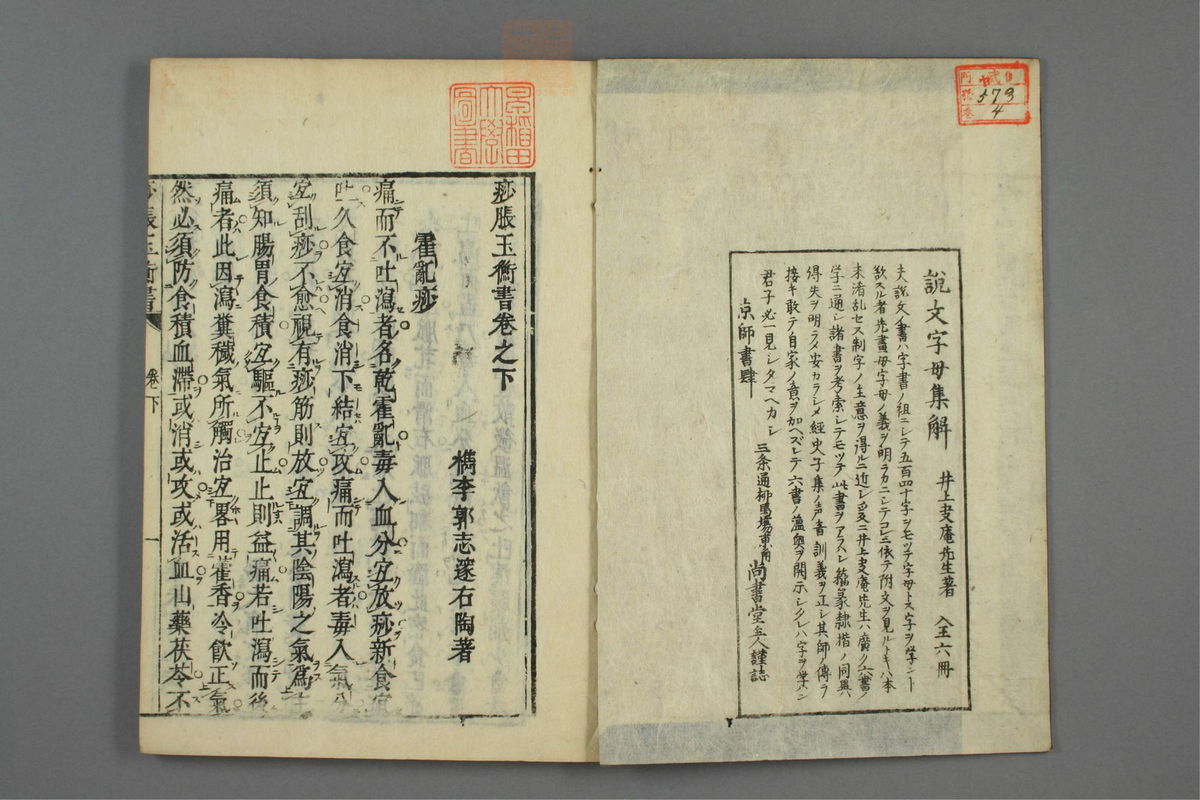 說文字母集解　井上𠭇庵先生著　全六冊
夫説文ノ書ハ字書ノ祖ニシテ五百四十字ヲモツテ字母トス字ヲ学ント
欲スル者先畫母字母ノ義ヲ明ラカニシテコレニ依テ附文ヲ見ルトキハ本
末淆乱セス制字ノ主意ヲ得ルニ近シ爰ニ井上𠭇庵先生ハ廣ク六書ノ
学ニ通シ諸書ヲ考索シテモツテ此書ヲアラハシ籀篆隷楷ノ同異
得失ヲ明ラメ安カラシメ經史子集ノ声音訓義ヲ正シ其師ノ傳ヲ
接キ敢テ自家ノ意ヲ加ヘズシテ六書ノ蘊奥ヲ開示シタレハ字ヲ學ハン
君子必一見シタマヘカシ
京師書肆　三条通柳馬場東角　尚書堂主人謹誌
早稲田大學圖書
門
號573
卷4
痧脹玉衡書卷之下
檇李郭志邃右陶著
霍亂痧
痛而不吐瀉者名乾霍亂毒入血分宜放痧新食宜
吐久食宜消食消下結宜攻痛而吐瀉者毒入氣分
宜刮痧不愈視有痧筋則放宜調其陰陽之氣爲主
須知腸胃食積宜驅不宜止止則益痛若吐瀉而後
痛者此因瀉糞穢氣所觸治宜畧用藿香冷飲正氣
然必須防食積血滯或消或攻或活血山藥茯苓不
痧脹玉衡書　卷下　一